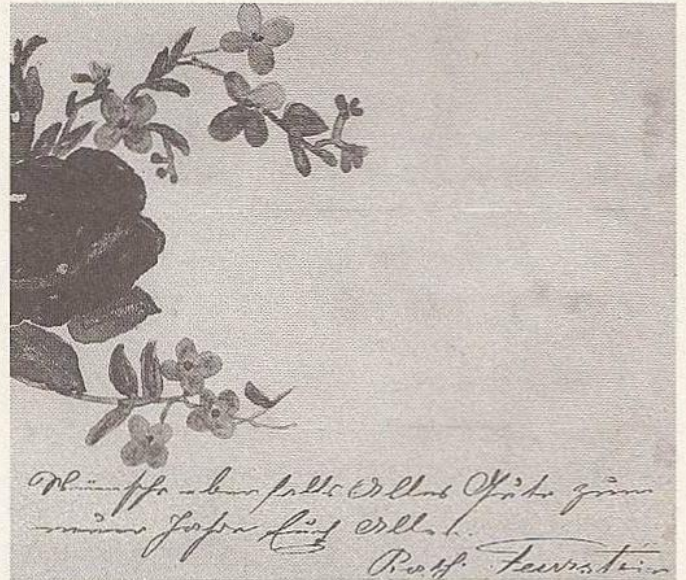 Wünsche ebenfalls Alles Gute zum
neuen Jahre Euch Allen.
Feurstein